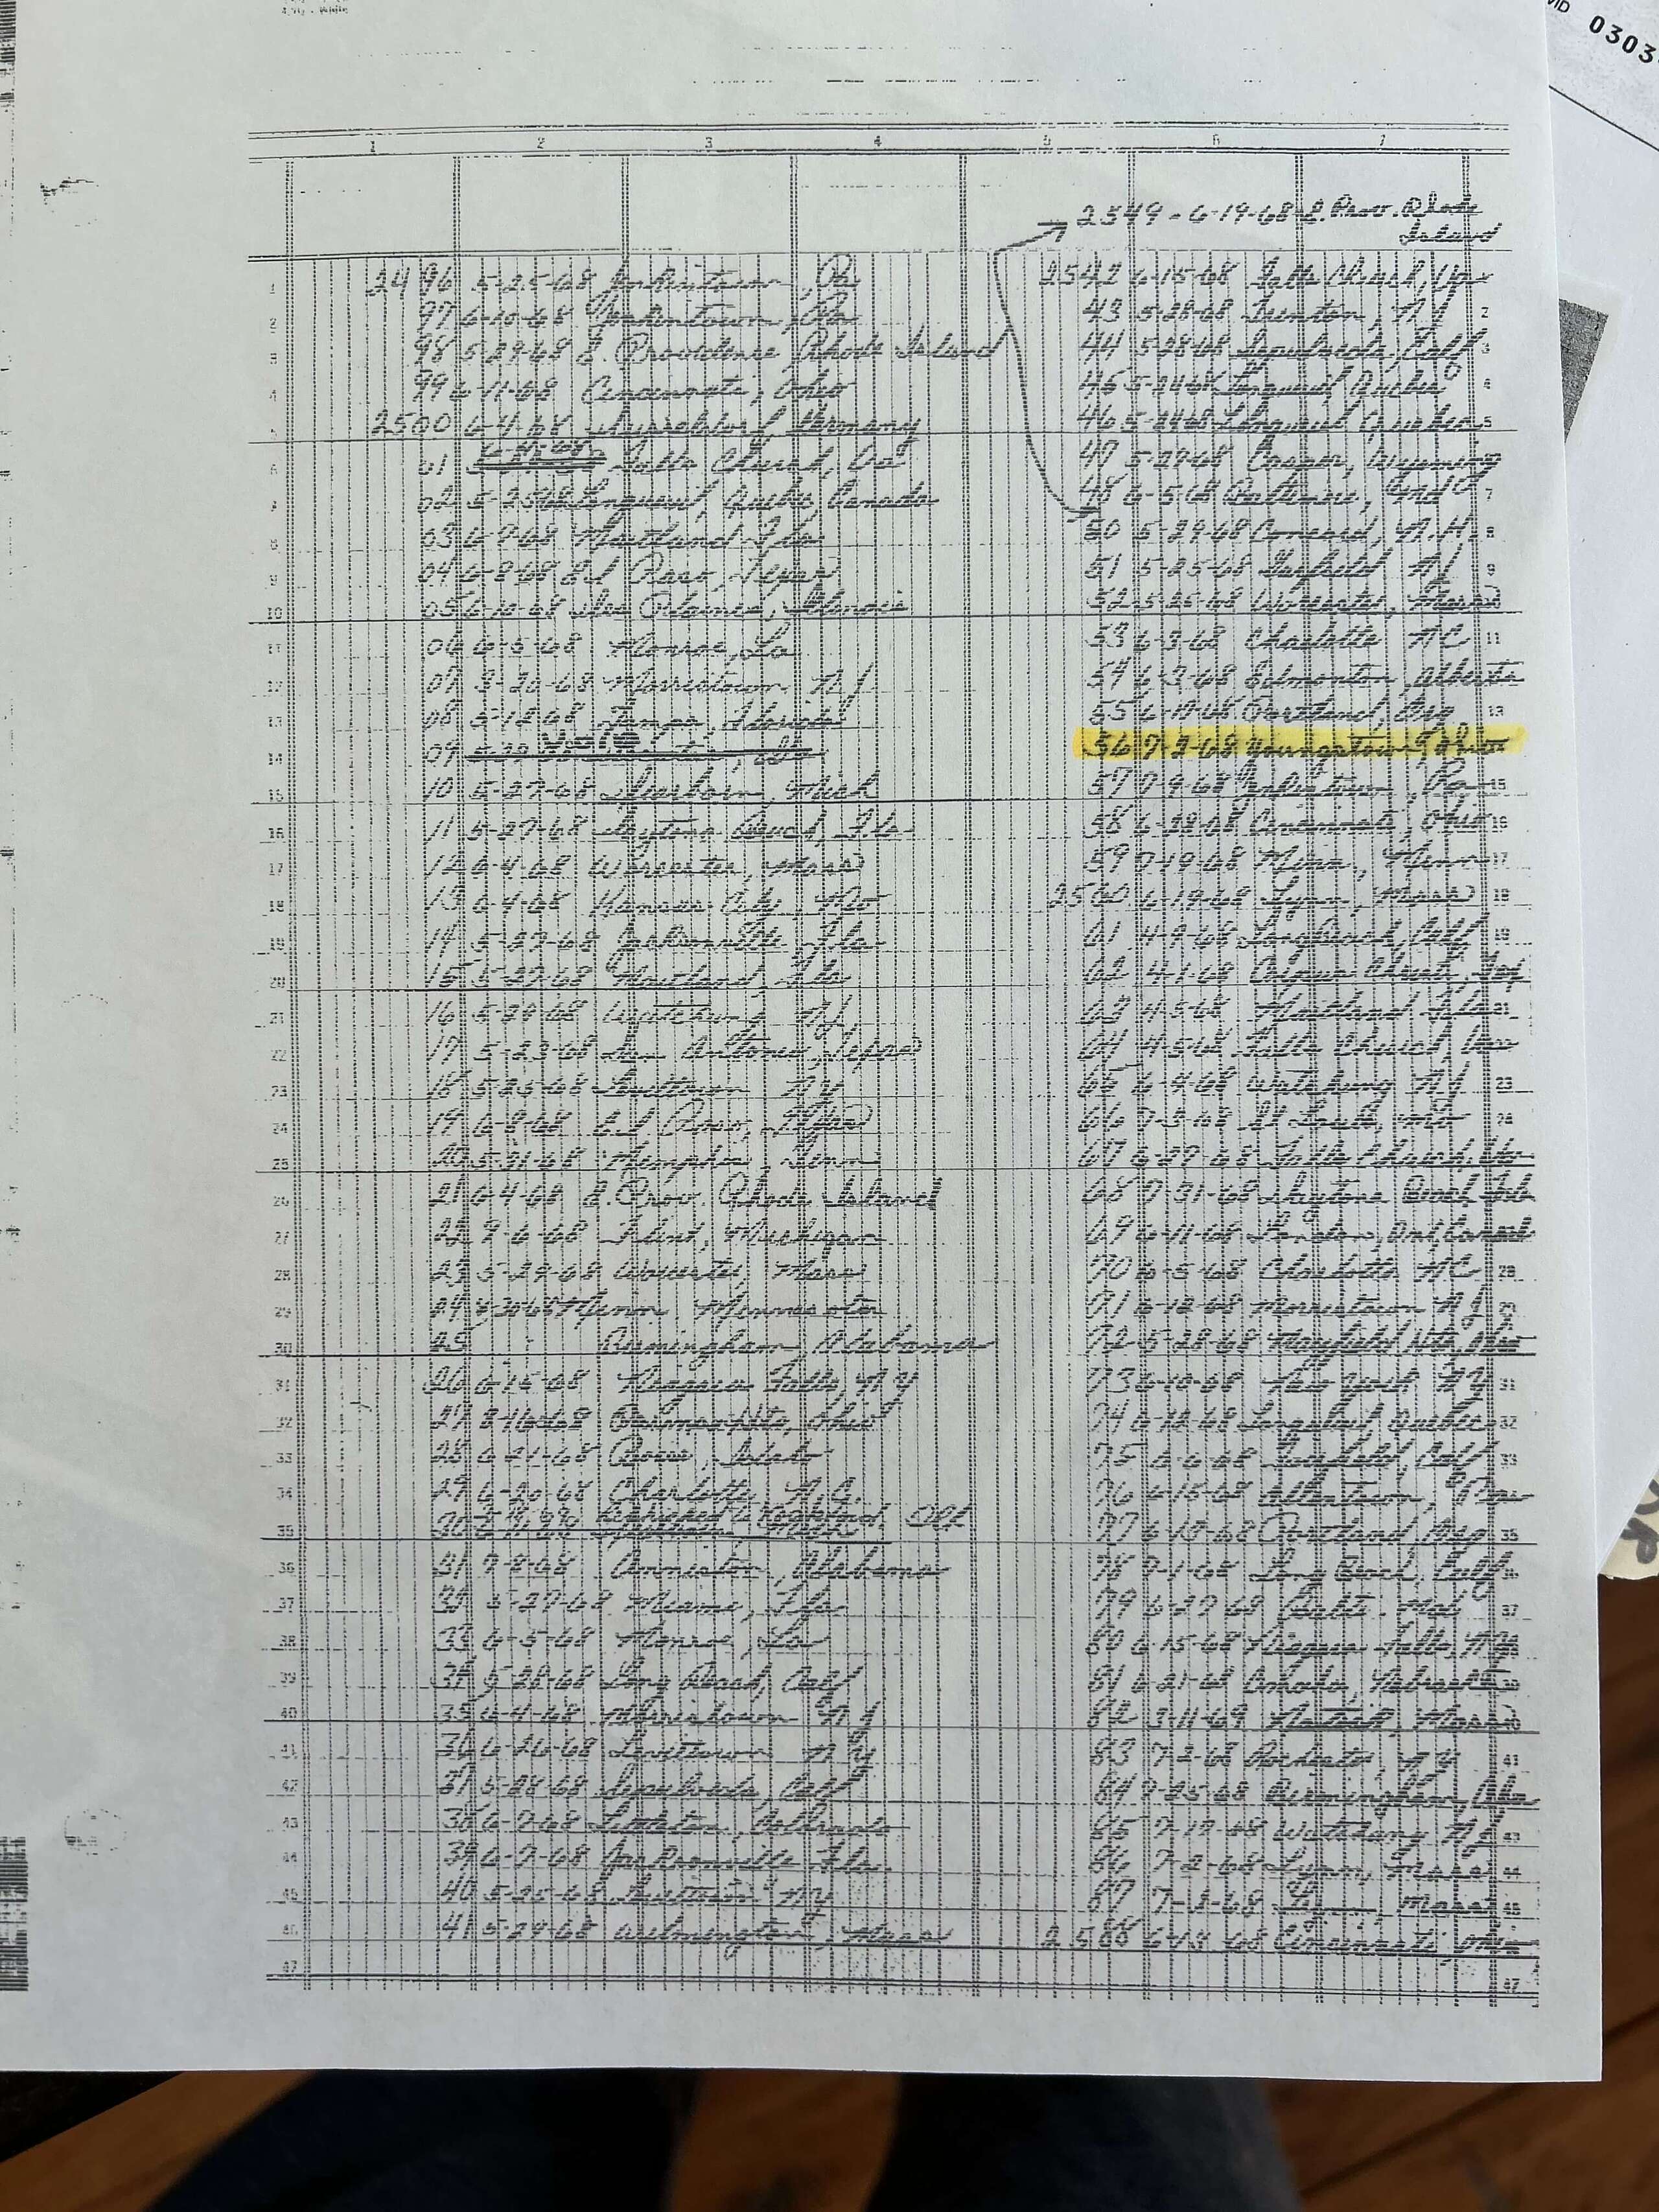 VID 0303
1 2 3 4 5 6 7
2549 - 6-19-68 E. Prov. Rhode
Island
1 2496 5-25-68 Jenkintown, Pa
2 97 6-10-68 Jenkintown, Pa
3 98 5-29-68 E. Providence Rhode Island
4 99 6-11-68 Cincinnati, Ohio
5 2500 6-4-68 Germany
6 01 Falls Church, Va
7 02 5-25-68 Longueuil, Quebec, Canada
8 03 6-7-68 Maitland Fla
9 04 6-8-68 El Paso, Texas
10 05 6-10-68 Des Plaines, Illinois
11 06 6-5-68 Monroe, La
12 07 3-20-68 Morristown NJ
13 08 5-18-68 Tampa, Florida
14 09
15 10 5-27-68 Dearborn, Mich
16 11 5-27-68 Daytona Beach, Fla
17 12 6-4-68 Worcester, Mass
18 13 6-4-68 Kansas City Mo
19 14 5-27-68 Jacksonville, Fla
20 15 5-27-68 Maitland Fla
21 16 5-29-68 Watchung NJ
22 17 5-23-68 San Antonio, Texas
23 18 5-25-68 Levittown N.Y
24 19 6-8-68 El Paso, Texas
25 20 5-31-68 Memphis, Tenn
26 21 6-4-68 E. Prov. Rhode Island
27 22 9-6-68 Flint, Michigan
28 23 5-29-68 Worcester, Mass
29 24 Minnesota
30 25 Birmingham, Alabama
31 26 6-15-68 Niagara Falls, N.Y
32 27 8-16-68 Ohio
33 28 6-21-68 Boise, Idaho
34 29 6-20-68 Charlotte, N.C.
35 30
36 31 7-8-68 Anniston, Alabama
37 32 5-27-68 Miami, Fla
38 33 6-5-68 Monroe, La
39 34 5-28-68 Long Beach, Calf
40 35 6-4-68 Morristown N.J
41 36 6-26-68 Levittown N.Y
42 37 5-28-68 Sepulveda, Calf
43 38 6-7-68 Littleton, Colorado
44 39 6-7-68 Jacksonville Fla.
45 40 5-25-68 Levittown NY
46 41 5-24-68 Wilmington, Mass
47
2542 6-15-68 Falls Church, Va
43 5-28-68 NJ 2
44 5-28-68 Sepulveda, Calf 3
45 5-24-68 Longueuil, Quebec 4
46 5-24-68 Longueuil Quebec 5
47 5-29-68 Casper, Wyoming
48 6-5-68 Baltimore, Md 7
50 5-29-68 Concord, N.H. 8
51 5-25-68 Garfield NJ 9
52 5-25-68 Worcester, Mass
53 6-3-68 Charlotte NC 11
54 6-3-68 Edmonton, Alberta
55 6-19-68 Portland, Org 13
56 7-2-68 Youngstown, Ohio
57 7-9-68 Jenkintown, Pa 15
58 6-28-68 Cincinnati, Ohio 16
59 7-19-68 Minn 17
2560 6-19-68 Lynn, Mass 18
61 4-9-68 Long Beach, Calf 19
62 4-1-68 Corpus Christi, Tex
63 4-5-68 Maitland Fla 21
64 4-5-68 Falls Church, Va
65 6-4-68 Watchung NJ 23
66 7-3-68 St Louis, Mo 24
67 6-27-68 Falls Church, Va
68 7-31-68 Daytona Beach, Fla
69 6-11-68 London, Ont, Canada
70 6-5-68 Charlotte NC 28
71 6-12-68 Morristown NJ 29
72 5-28-68 Mayfield Hts, Ohio
73 6-10-68 New York NY 31
74 6-12-68 Longueuil Quebec 32
75 6-6-68 Calf 33
76 6-15-68 Allentown, Pa
77 6-10-68 Portland, Org 35
78 7-1-68 Long Beach, Calf
79 6-27-68 Balto. Md 37
80 6-15-68 Niagara Falls, N.Y
81 6-21-68 Omaha, Nebraska
82 3-11-69 Natick, Mass
83 7-2-68 Rochester, NY 41
84 7-25-68 Birmingham, Ala
85 7-17-68 Watchung NJ 43
86 7-2-68 Lynn, Mass 44
87 7-2-68 Lynn, Mass 45
2588 6-13-68 Cincinnati, Ohio
47